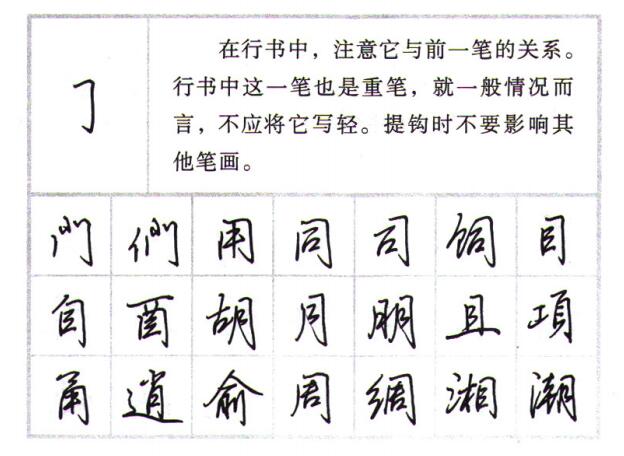 在行书中，注意它与前一笔的关系。
行书中这一笔也是重笔，就一般情况而
言，不应将它写轻。提钩时不要影响其
他笔画。
門 們 用 同 司 饲 目
自 酉 胡 月 明 且 項
甬 逍 俞 周 绸 湘 潮